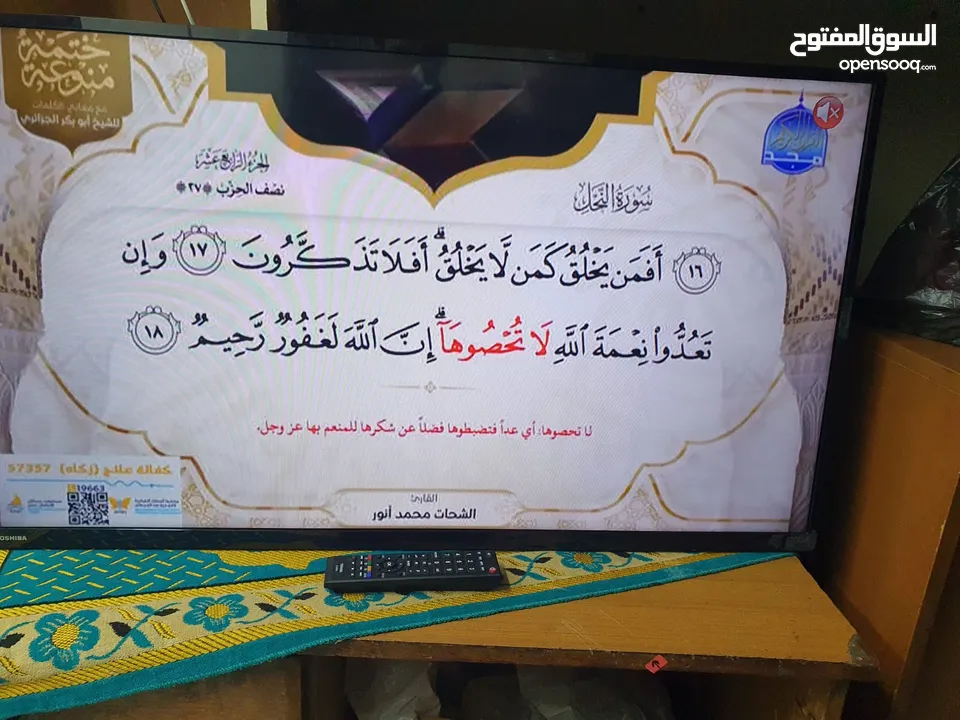 السوق المفتوح
opensooq.com
ختمة
منوعة
مع معاني الكلمات
للشيخ أبو بكر الجزائري
مجد
الجزء الرابع عشر
نصف الحزب ﴿٢٧﴾
سُورَةُ النَّحْلِ
١٦ أَفَمَن يَخْلُقُ كَمَن لَّا يَخْلُقُ ۗ أَفَلَا تَذَكَّرُونَ ١٧ وَإِن
تَعُدُّوا۟ نِعْمَةَ ٱللَّهِ لَا تُحْصُوهَآ ۗ إِنَّ ٱللَّهَ لَغَفُورٌ رَّحِيمٌ ١٨
لا تحصوها: أي عداً فتضبطوها فضلاً عن شكرها للمنعم بها عز وجل.
كفالة علاج (زكاة) 57357
19663
القارئ:
الشحات محمد أنور
TOSHIBA